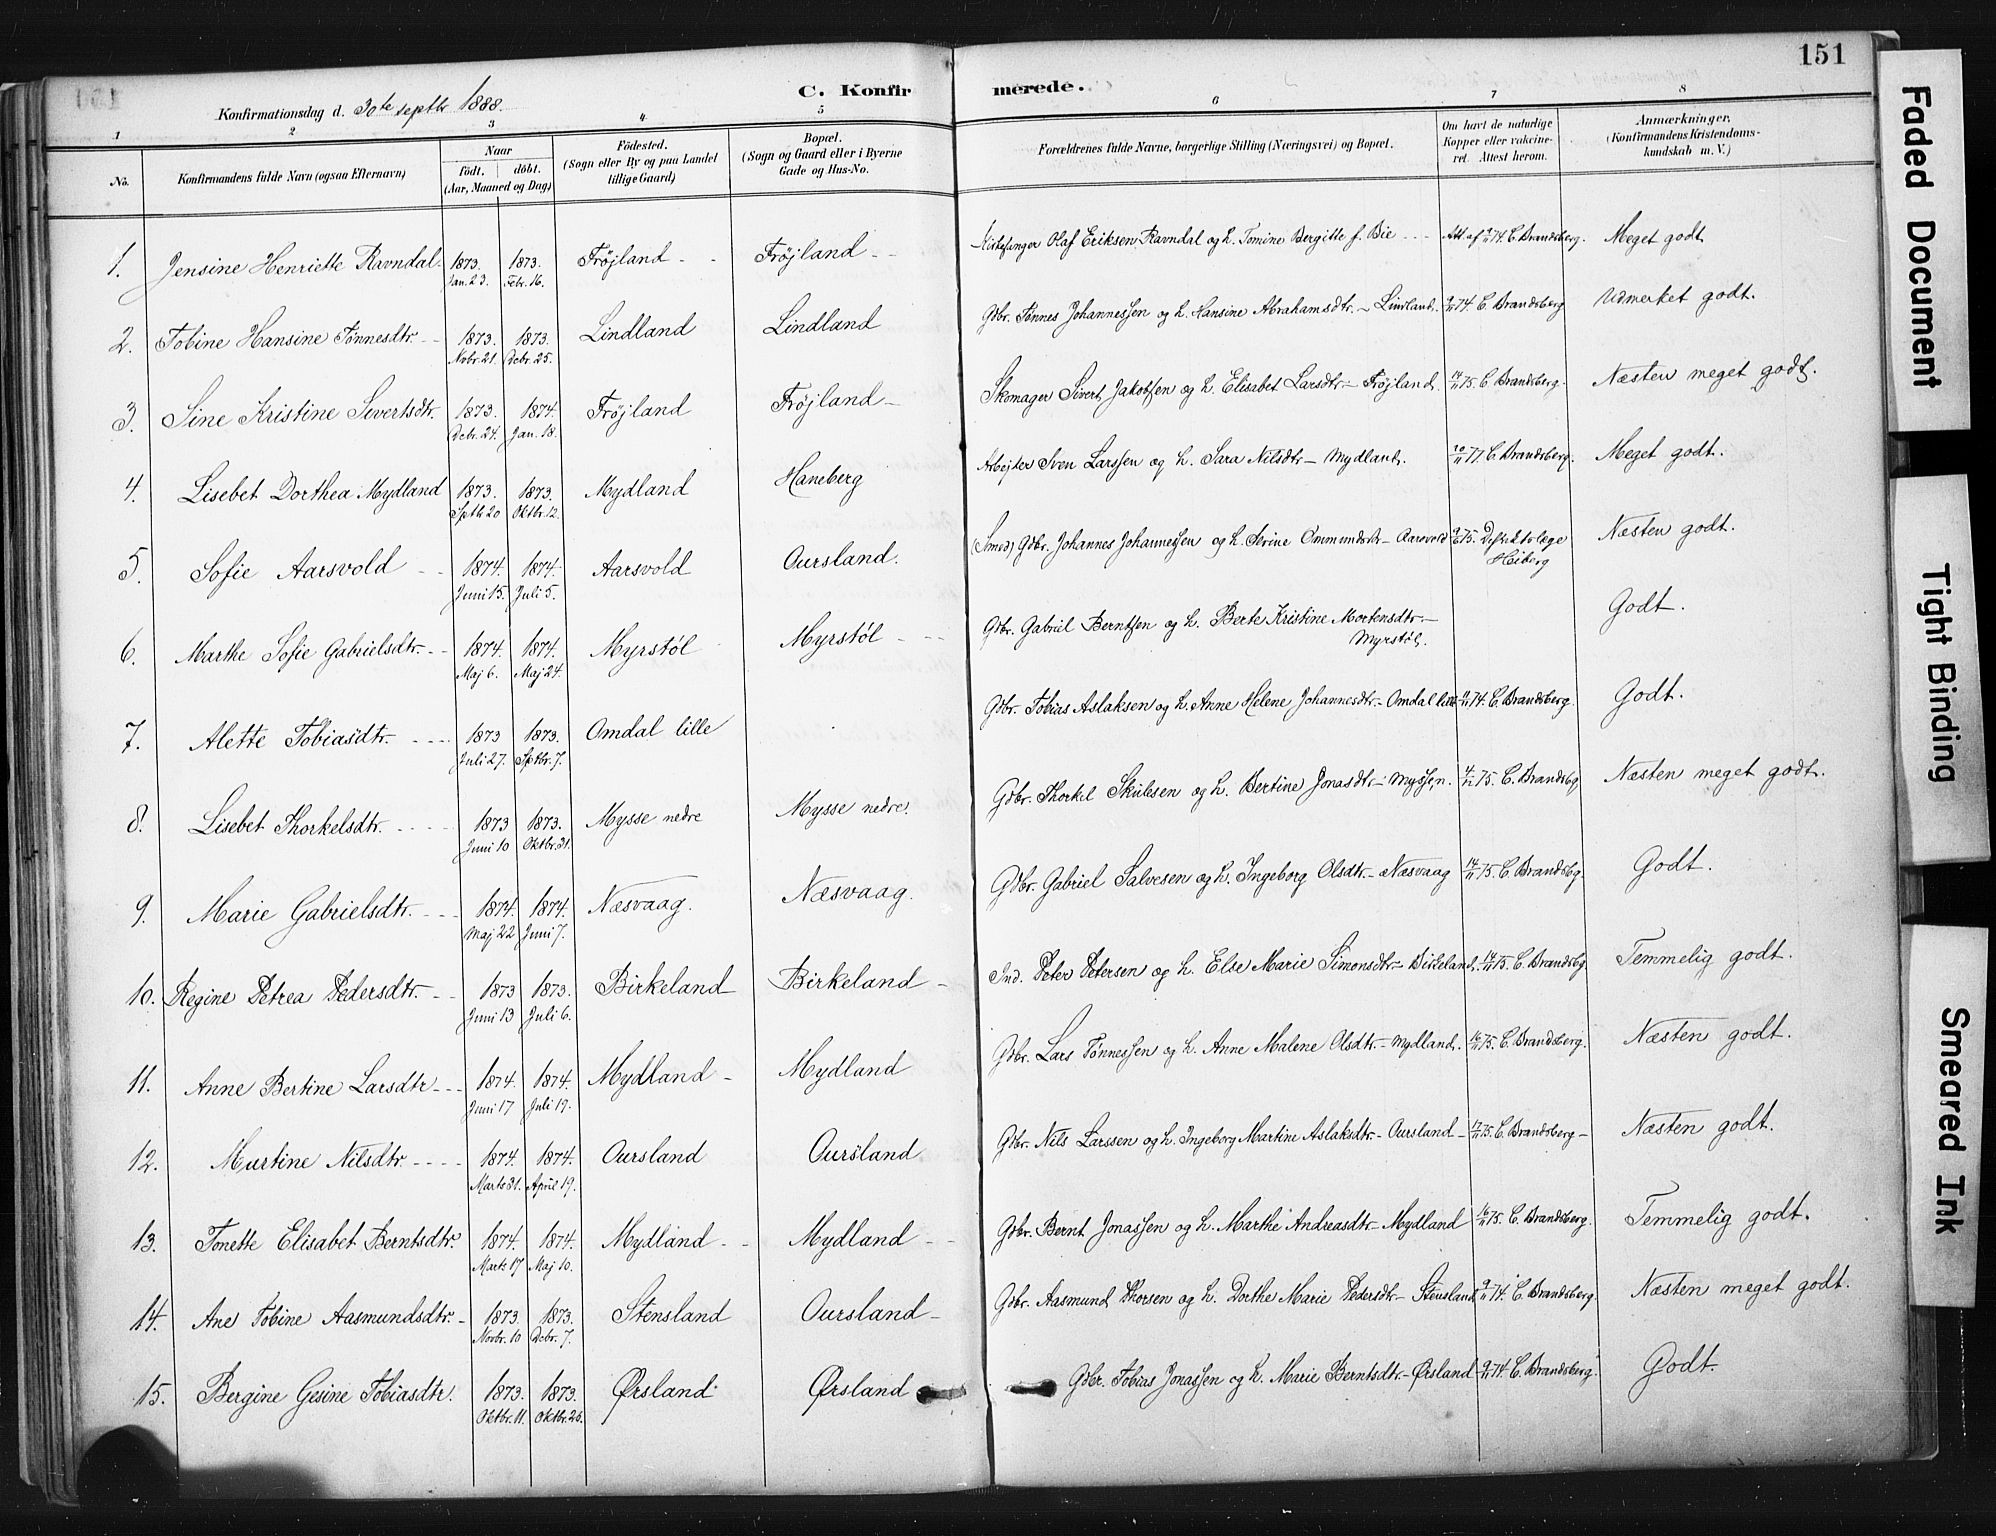 151
C. Konfirmerede.
Konfirmationsdag d. 30te septbr 1888.
1 2 3 4 5 6 7 8
No. Konfirmandens fulde Navn (ogsaa Efternavn) Naar födt. döbt. (Aar, Maaned og Dag) Födested. (Sogn eller By og paa Landet tillige Gaard) Bopæl. (Sogn og Gaard eller i Byerne Gade og Hus-No. Forældrenes fulde Navne, borgerlige Stilling (Næringsvei) og Bopæl. Om havt de naturlige Kopper eller vakcineret. Attest herom. Anmærkninger. (Konfirmandens Kristendomskundskab m. V.)
1. Jensine Henriette Ravndal. 1873. Jan. 23. 1873. Febr. 16. Frøjland - - Frøjland - - Kirkesanger Olaf Eriksen Ravndal og h. Tomine Bergitte f. Bie - - - Att. af 9/11 74 C. Brandsberg. Meget godt
2. Tobine Hansine Tønnesdtr. - - 1873. Novbr. 21. 1873. Decbr. 25. Lindland Lindland Gdbr. Tønnes Johannessen og h. Hansine Abrahamsdtr. - Lindland. 9/11 74. C. Brandsberg Udmerket godt.
3. Sine Kristine Sivertsdtr. 1873. Decbr. 24. 1874. Jan. 18. Frøjland Frøjland - Skomager Sivert Jakobsen og h. Elisabet Larsdtr. - Frøjland. 14/11 75. C. Brandsberg. Næsten meget godt.
4. Lisebet Dorthea Mydland 1873. Sptb 20 1873. Oktbr. 12. Mydland Haneberg Arbejder Sven Larssen og h. Sara Nilsdtr - Mydland. 20/11 77. C. Brandsberg. Meget godt.
5. Sofie Aarsvold - - 1874. Juni 15. 1874. Juli 5. Aarsvold Oursland. (Smed) Gdbr. Johannes Johannessen og h. Serine Ommundsdtr - Aarsvold 75. Distriktslæge Heiberg Næsten godt.
6. Marthe Sofie Gabrielsdtr. - - 1874. Maj 6. 1874. Maj 24. Myrstøl Myrstøl - - - Gdbr. Gabriel Berntsen og h. Berte Kristine Mortensdtr. - Myrstøl. Godt.
7. Alette Tobiasdtr. - - - 1873 Juli 27. 1873. Sptbr. 7. Omdal lille Gdbr. Tobias Aslaksen og h. Anne Helene Johannesdtr. - Omdal lille 74. C. Brandsberg. Godt.
8. Lisebet Thorkelsdtr. - - - - 1873 Juni 10 1873. Oktbr. 31. Mysse nedre Mysse nedre. Gdbr. Thorkel Skulesen og h. Bertine Jonasdtr - Myssen. 4/11 75. C. Brandsbg Næsten meget godt.
9. Marie Gabrielsdtr. - - - 1874. Maj 22 1874. Juni 7. Næsvaag. Næsvaag. Gdbr. Gabriel Salvesen og h. Ingeborg Olsdtr. - Næsvaag 14/11 75. C. Brandsbg. Godt.
10. Regine Petrea Pedersdtr. - - 1873 Juni 13 1873. Juli 6. Birkeland Birkeland - Ind. Peter Petersen og h. Else Marie Simonsdtr - Birkeland. 14/11 75. C. Brandsbg. Temmelig godt.
11. Anne Bertine Larsdtr - - - 1874. Juni 17 1874. Juli 19. Mydland - Mydland Gdbr. Lars Tønnessen og h. Anne Malene Olsdtr. - Mydland. 16/11 75. C. Brandsberg. Næsten godt.
12. Martine Nilsdtr. - - - - 1874. Marts 31. 1874. April 19. Oursland Oursland Gdbr. Nils Larssen og h. Ingeborg Martine Aslaksdtr. - Oursland - 17/11 75. C. Brandsberg - Næsten godt.
13. Tonette Elisabet Berntsdtr. 1874. Marts 17 1874. Maj 10. Mydland - - Mydland - - Gdbr. Bernt Jonassen og h. Marthe Andreasdtr - Mydland 16/11 75. C. Brandsberg. Temmelig godt.
14. Ane Tobine Aasmundsdtr. - 1873. Novbr. 10 1873. Decbr. 7. Stensland Oursland - Gdbr. Aasmund Thorsen og h. Dorthe Marie Pedersdtr - Stensland 9/11 74. C. Brandsberg. Næsten meget godt.
15. Bergine Gesine Tobiasdtr. 1873. Oktbr. 11. 1873. Oktbr. 26. Ørsland Ørsland Gdbr. Tobias Jonassen og h. Marie Berntsdtr. - Ørsland 9/11 74. C. Brandsberg. Godt.
Faded Document
Tight Binding
Smeared Ink